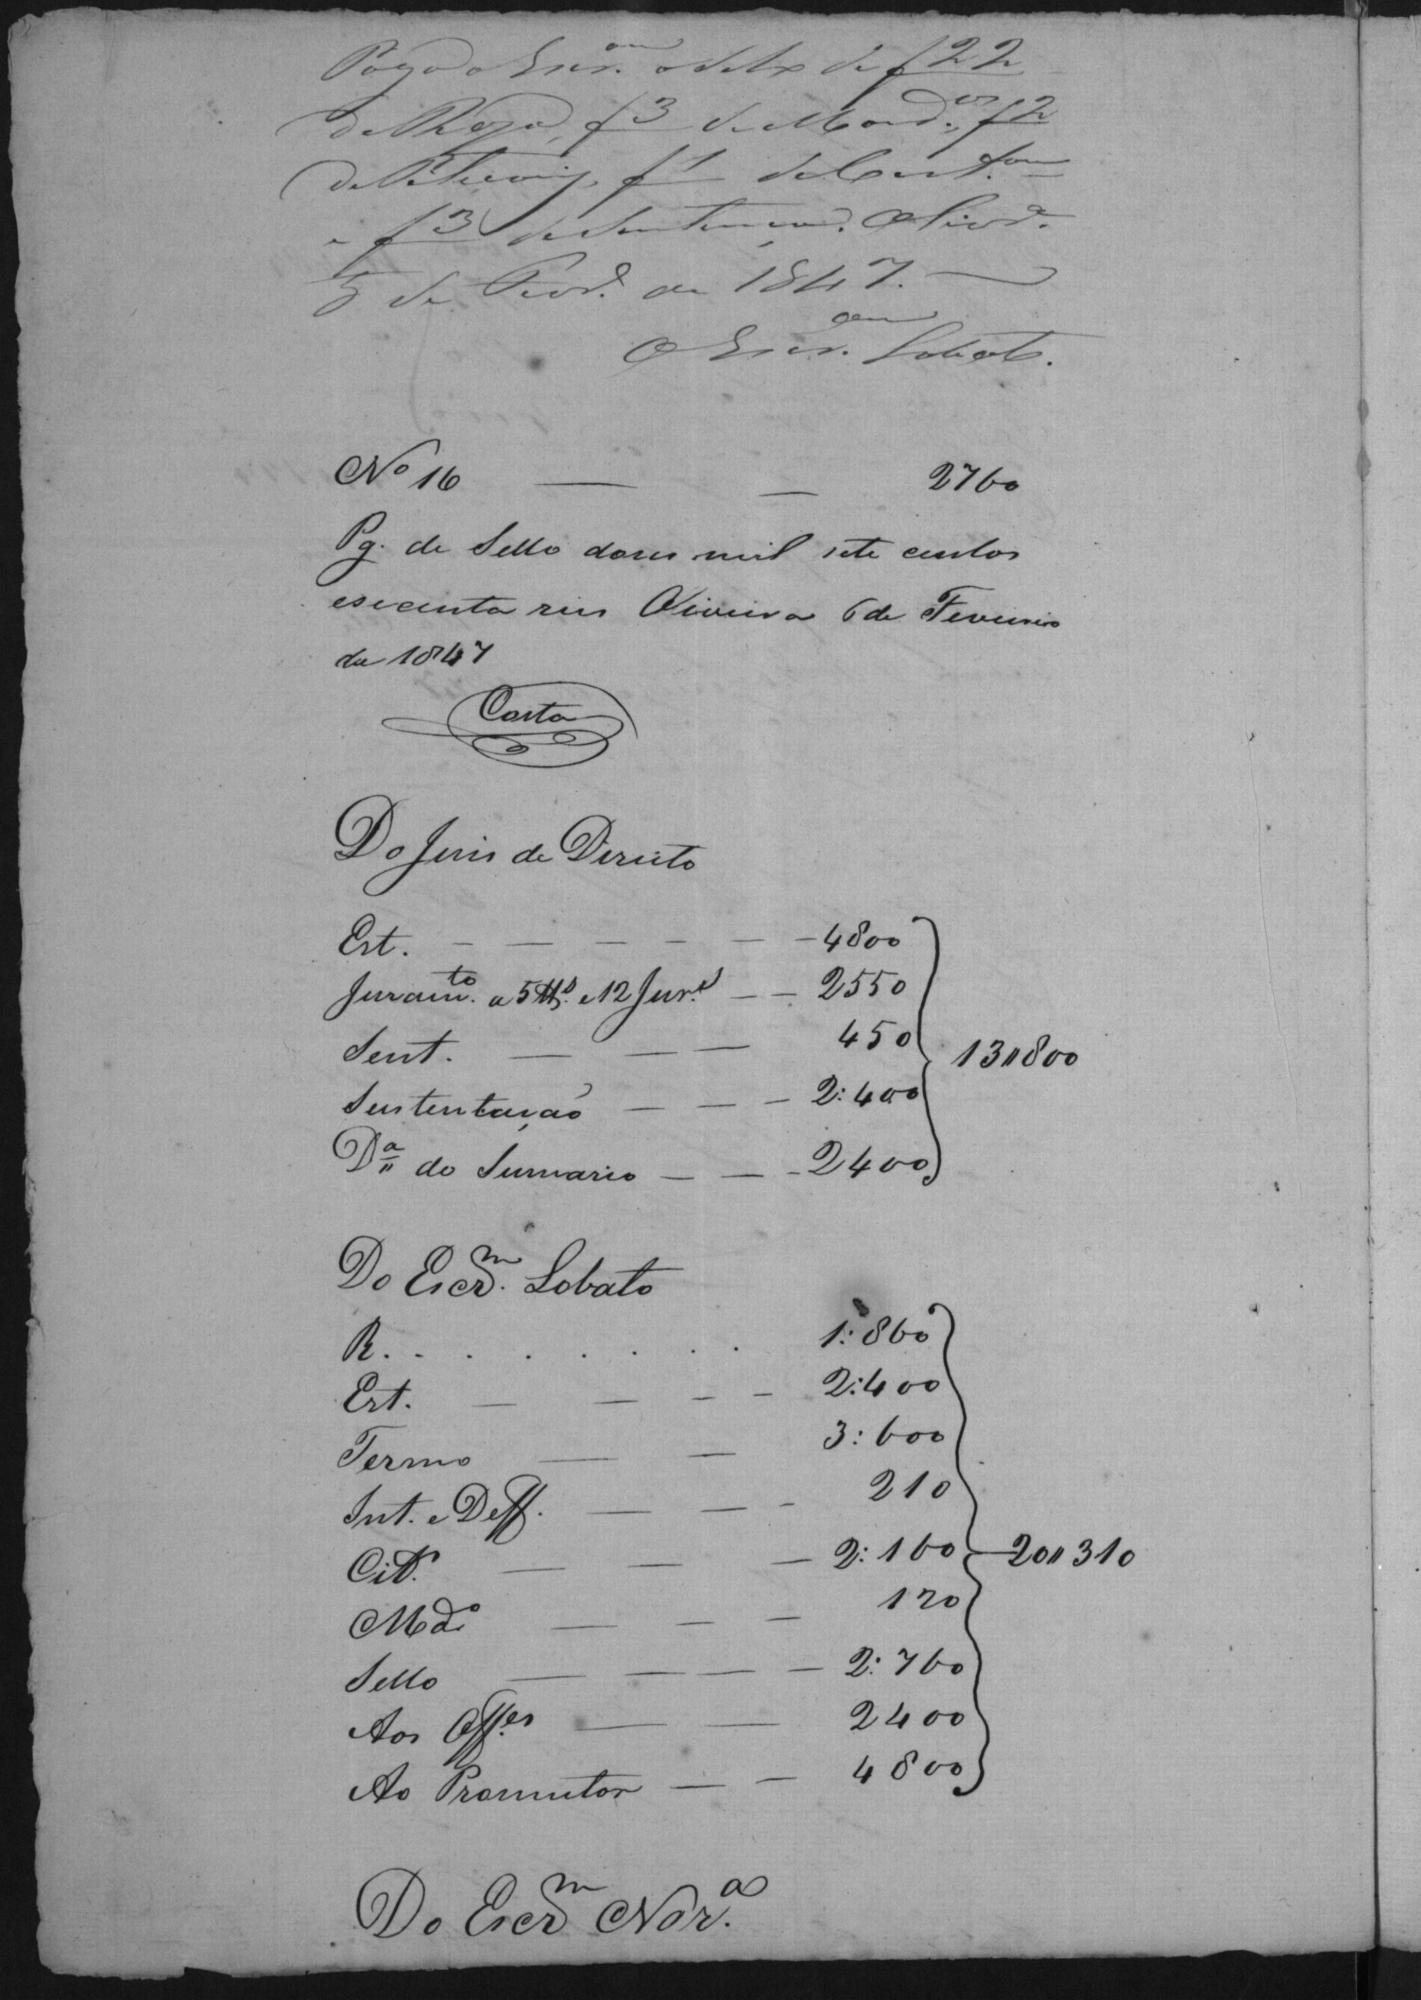 Pagou o Escr.am o Sello de f 22
f 3 de Mand.os, f 2
f 1 de Cert.am
e f 3 de Sentença. Olivr.a
5 de Fevr.o de 1847.
O Escr.am Lobato.
No 16 — — 2760
Pg. de Sello dous mil sete centos
esecenta reis Oliveira 6 de Fevereiro
de 1847
Costa
Do Juis de Direito
Est. — — — — — — 4800
Juram.to a 5 tt.as e 12 Jur.s — — 2550
Sent. — — — 450
13"800
Sustentação — — — 2:400
D.a do Sumario — — — 2400
Do Escr.m Lobato
R. . . . . . . . 1:860
Est. — — — — 2:400
Termo — — 3:600
Int. e Deff. — — — 210
Cit. — — — 2:160 — 20"310
Md.o — — — 120
Sello — — — — 2:760
Aos Off.es — — 2400
Ao Promutor — — 4800
Do Escr.m Nor.a